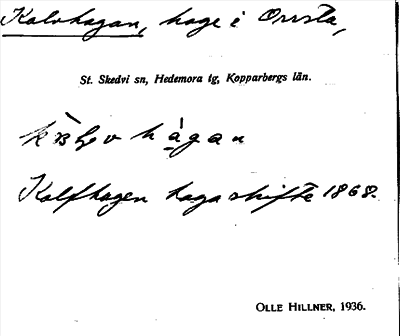 Kalvhagan, hage i Orrsta,
St. Skedvi sn, Hedemora tg, Kopparbergs län.
hàgan
Kalfhagen haga skifte 1868.
OLLE HILLNER, 1936.